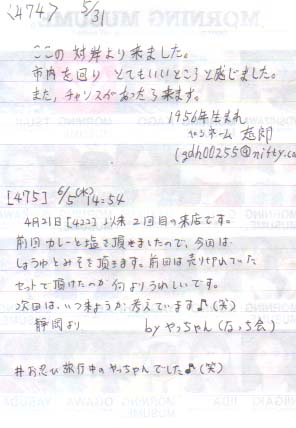 〈474〉 5/31
ここの対岸より来ました。
市内を回り とてもいいところと感じました。
また、チャンスがあったら来ます。
1956年生まれ
ペンネーム 志郎
(gdh00255@nifty.co
[475] 6/5(水)14:54
4月21日[422]以来2回目の来店です。
前回カレーと塩を頂きましたので、今回は
しょうゆとみそを頂きます。前回は売り切れていた
セットで頂けたのが何よりうれしいです。
次回は、いつ来ようか考えています♪(笑)
静岡より by やっちゃん(なっち会)
#お忍び旅行中のやっちゃんでした♪(笑)
MORNING MUSUME
IIDA
OGAWA
YASUDA